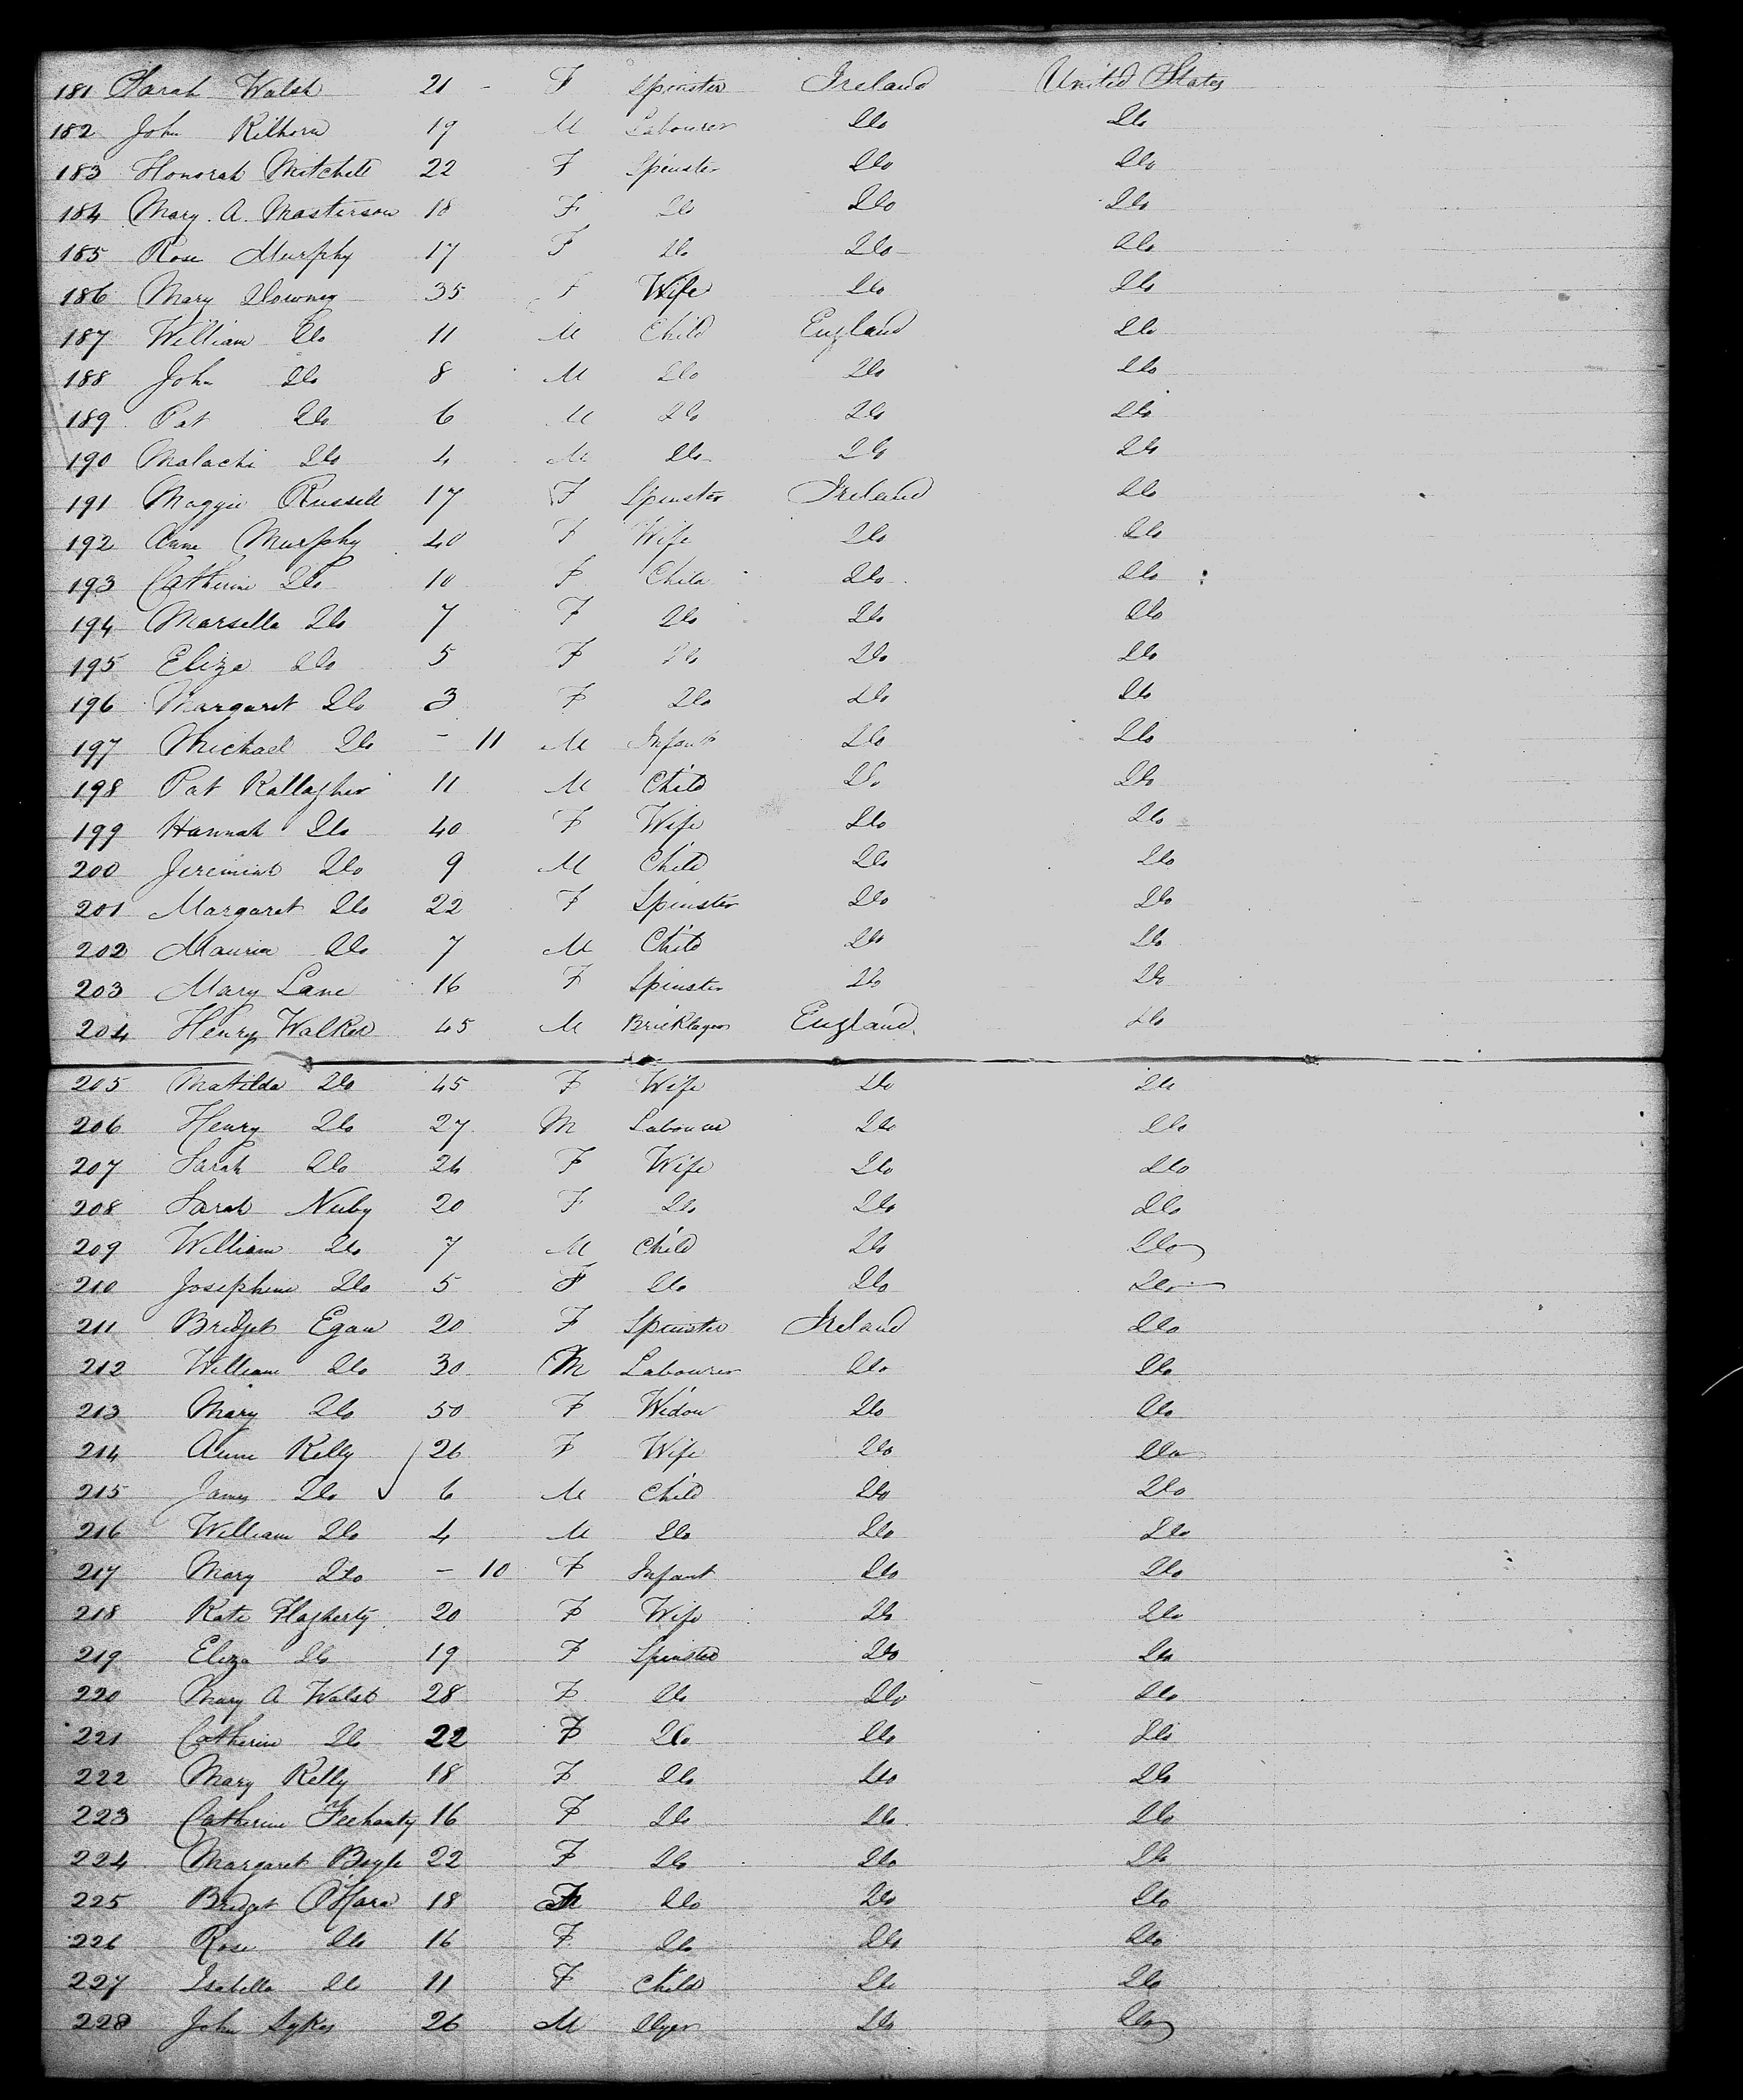 181 Sarah Walsh 21 - F Spinster Ireland United States
182 John Kilhorn 19 M Labourer Do Do
183 Honorah Mitchell 22 F Spinster Do Do
184 Mary A Masterson 18 F Do Do Do
185 Rose Murphy 17 F Do Do Do
186 Mary Downey 35 F Wife Do Do
187 William Do 11 M Child England Do
188 John Do 8 M Do Do Do
189 Pat Do 6 M Do Do Do
190 Malachi Do 4 M Do Do Do
191 Maggie Russell 17 F Spinster Ireland Do
192 Anne Murphy 40 F Wife Do Do
193 Catherine Do 10 F Child Do Do
194 Marsella Do 7 F Do Do Do
195 Eliza Do 5 F Do Do Do
196 Margaret Do 3 F Do Do Do
197 Michael Do - 11 M Infant Do Do
198 Pat Kallagher 11 M Child Do Do
199 Hannah Do 40 F Wife Do Do
200 Jeremiah Do 9 M Child Do Do
201 Margaret Do 22 F Spinster Do Do
202 Maurice Do 7 M Child Do Do
203 Mary Lane 16 F Spinster Do Do
204 Henry Walker 45 M Bricklayer England Do
205 Matilda Do 45 F Wife Do Do
206 Henry Do 27 M Labourer Do Do
207 Sarah Do 26 F Wife Do Do
208 Sarah Nuby 20 F Do Do Do
209 William Do 7 M Child Do Do
210 Josephine Do 5 F Do Do Do
211 Bridget Egan 20 F Spinster Ireland Do
212 William Do 30 M Labourer Do Do
213 Mary Do 50 F Widow Do Do
214 Anne Kelly 26 F Wife Do Do
215 James Do 6 M Child Do Do
216 William Do 4 M Do Do Do
217 Mary Do - 10 F Infant Do Do
218 Kate Flagherty 20 F Wife Do Do
219 Eliza Do 19 F Spinster Do Do
220 Mary A Walsh 28 F Do Do Do
221 Catherine Do 22 F Do Do Do
222 Mary Kelly 18 F Do Do Do
223 Catherine Feehanty 16 F Do Do Do
224 Margaret Boyle 22 F Do Do Do
225 Bridget O'Hara 18 F Do Do Do
226 Rose Do 16 F Do Do Do
227 Isabella Do 11 F Child Do Do
228 John Sykes 26 M Dyer Do Do